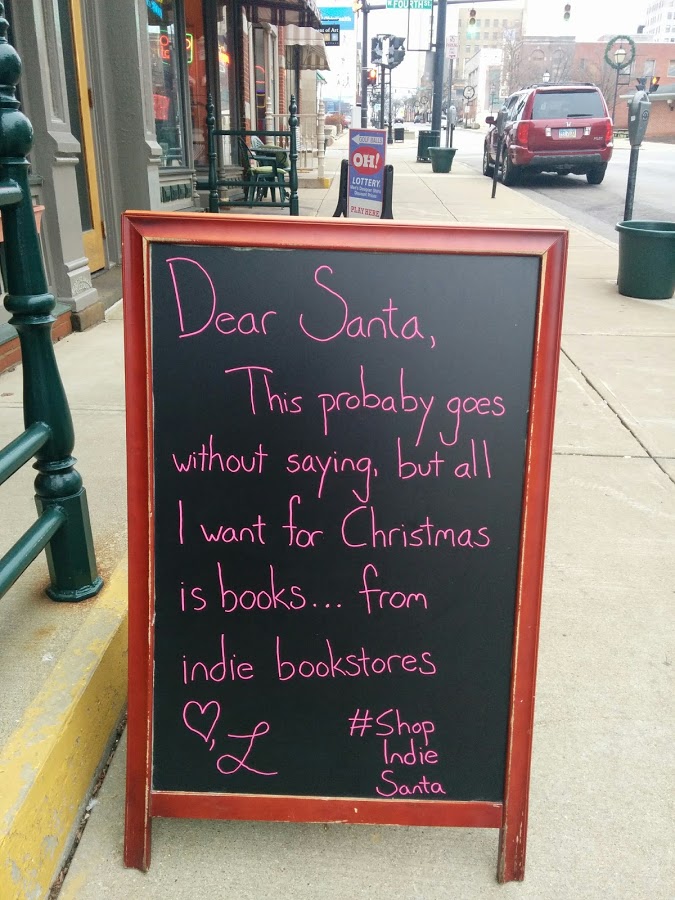 N FOURTH ST
OH!
LOTTERY
PLAY HERE
Dear Santa,
This probaby goes
without saying, but all
I want for Christmas
is books... from
indie bookstores
♡, L
#Shop
Indie
Santa